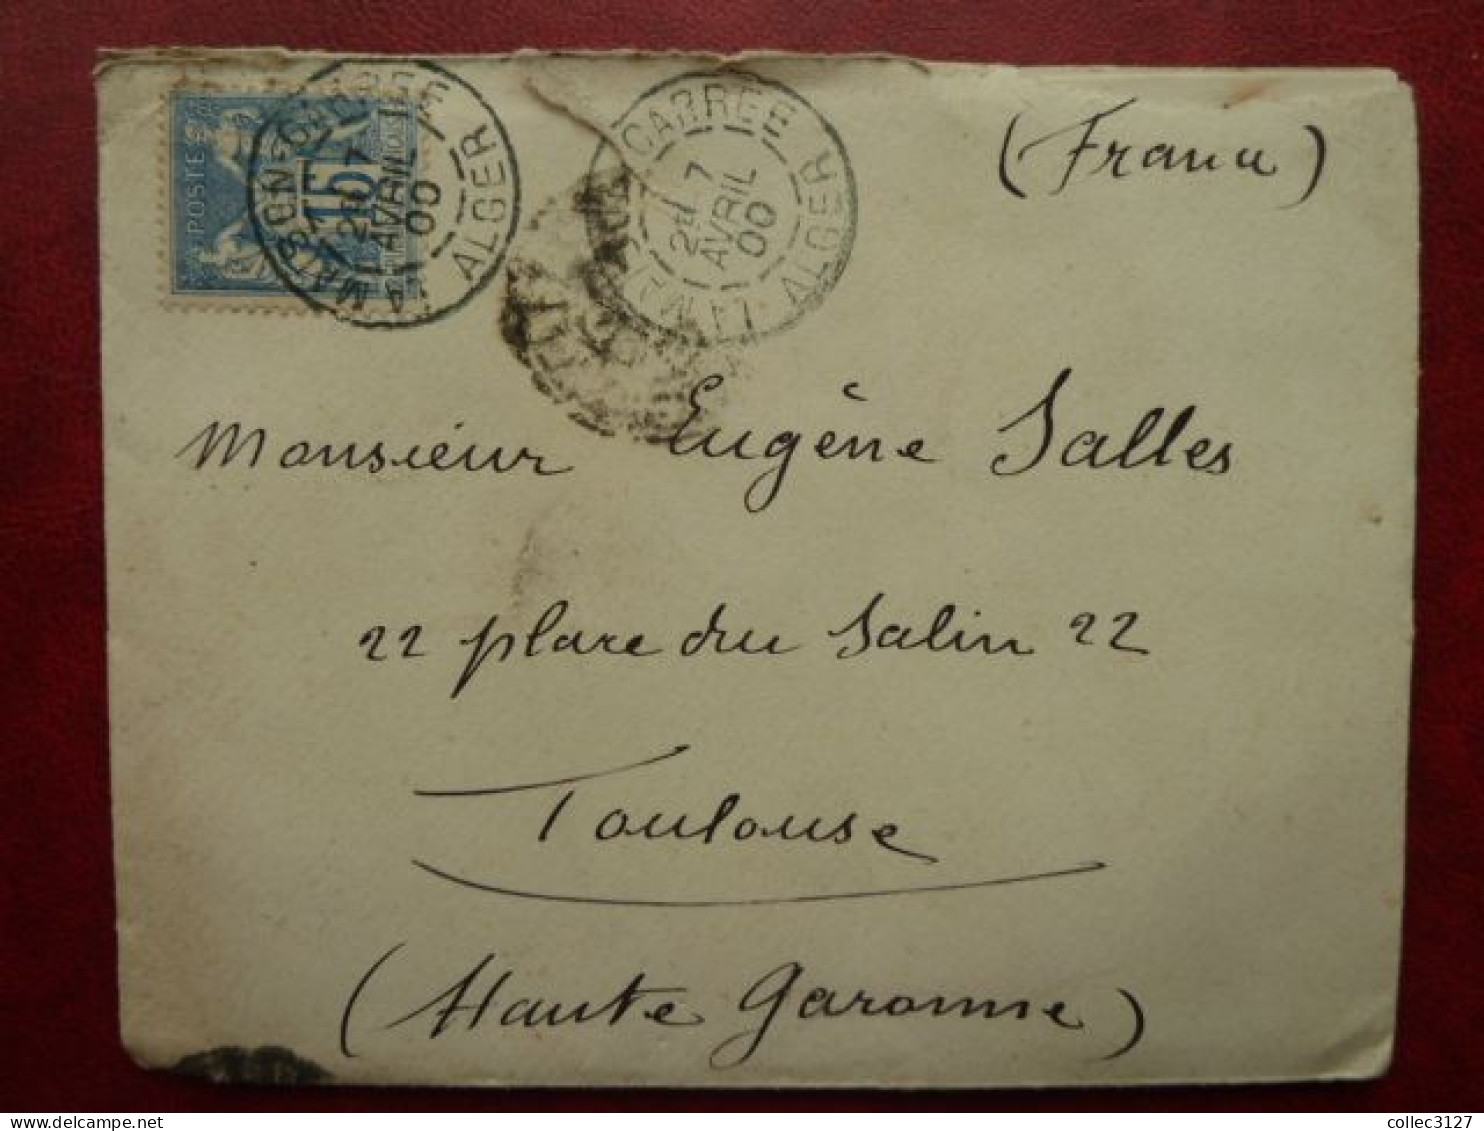 (France)
POSTES
15
LA MAISON-CARRÉE
7
AVRIL
00
ALGER
CARRÉE
7
AVRIL
00
ALGER
Monsieur Eugène Salles
22 place du Salin 22
Toulouse
(Haute Garonne)
collec3127